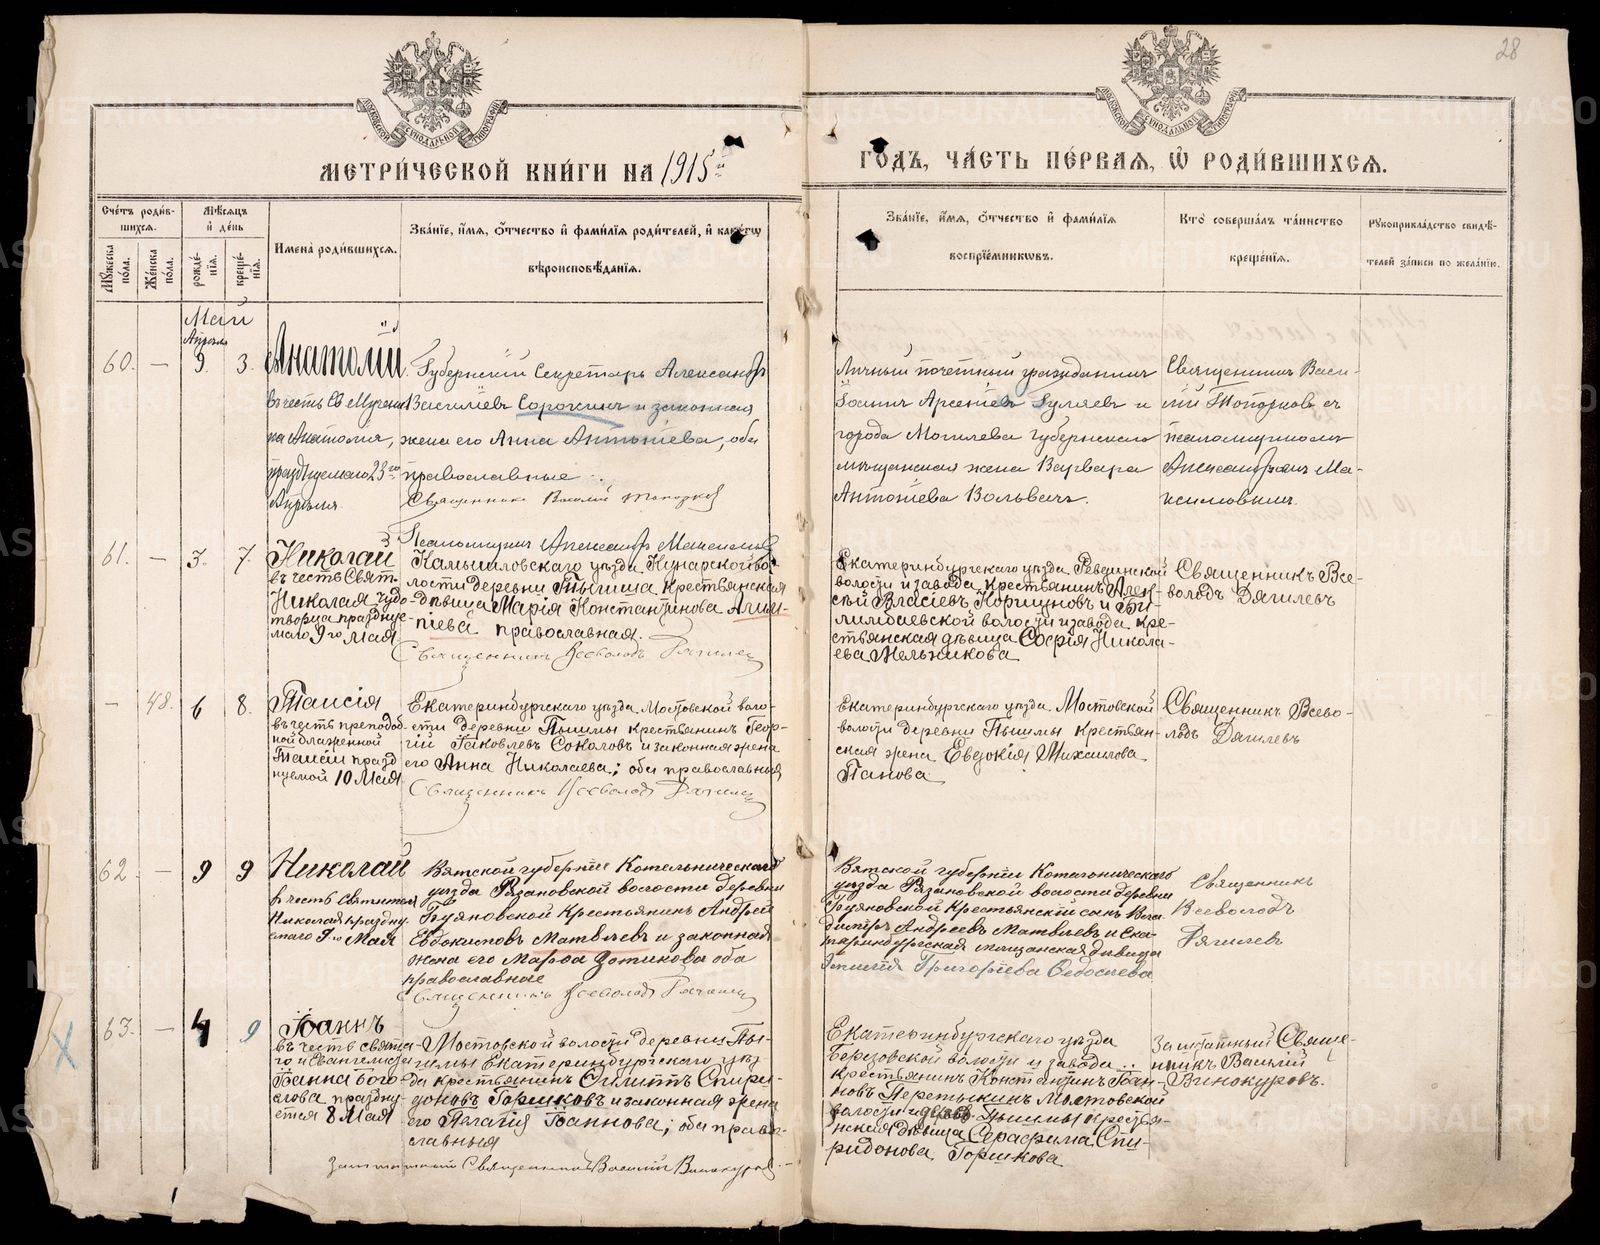 28
МОСКОВСКОЙ СѴНОДАЛЬНОЙ ТИПОГРАФІИ
МОСКОВСКОЙ СѴНОДАЛЬНОЙ ТИПОГРАФІИ
МЕТРИ́ЧЕСКОЙ КНИ́ГИ НА 1915й
ГО́ДЪ, ЧА́СТЬ ПЕ́РВАЯ, Ѡ҆ РОДИ́ВШИХСЯ.
Сче́тъ роди́в-
шихся.
Мꙋ́жеска по́ла.
Же́нска по́ла.
Мѣ́сяцъ и҆ де́нь
рожде́-нїя.
креще́-нїя.
И҆мена̀ роди́вшихся.
Зва́нїе, и҆́мя, ѻ҆́тчество и҆ фами́лїя роди́телей, и҆ како́гѡ
вѣроисповѣ́данїя.
Зва́нїе, и҆́мя, ѻ҆́тчество и҆ фами́лїя
воспрїе́мникѡвъ.
Кто̀ соверша́лъ та́инство
креще́нїя.
Рꙋкоприкла́дство свидѣ́-
телей за́писи по жела́нїю.
Май
Апрѣль
60. — 9. 3.
Анатолій
въ честь Св Мучени
ка Анатолія,
празднуемаго 23го
Апрѣля.
Губернскій Секретарь Александръ
Василіевъ Сорокинъ и законная
жена его Анна Антоніева, оба
православные
Священникъ Василій Топорков
Псаломщикъ Александръ Максимовъ
Личный почетный гражданинъ
Іоаннъ Арсеніевъ Гуляевъ и
города Могилева губернскаго
мѣщанская жена Варвара
Антоніева Вольвачъ.
Священникъ Васи-
лій Топорковъ съ
псаломщикомъ
Александромъ Ма-
ксимовымъ.
61. — 3. 7.
Николай
въ честь Свят.
Николая Чудо-
творца праздну-
емаго 9го Мая
Камышловскаго уѣзда Кунарской во-
лости деревни Тыгиша крестьянская
дѣвица Марія Константинова
православная.
Священникъ Всеволодъ Дягилевъ
Екатеринбургскаго уѣзда Ревдинской
волости и завода крестьянинъ Алек-
сѣй Власіевъ Коршуновъ и Би-
лимбаевской волости и завода кре-
стьянская дѣвица Софія Никола-
ева Мельникова
Священникъ Все-
володъ Дягилевъ
— 48. 6 8.
Таисія
въ честь преподоб
ной блаженной
Таисіи празд
нуемой 10 Мая
Екатеринбургскаго уѣзда Мостовской воло-
сти деревни Пышмы крестьянинъ Геор-
гій Іаковлевъ Соколовъ и законная жена
его Анна Николаева; оба православныя
Священникъ Всеволодъ Дягилевъ
Екатеринбургскаго уѣзда Мостовской
волости деревни Пышмы крестьян-
ская жена Евдокія Михаилова
Панова
Священникъ Всево-
лодъ Дягилевъ
62 — 9 9
Николай
въ честь Святителя
Николая праздну
емаго 9го Мая
Вятской губерніи Котельническаго
уѣзда Рязановской волости деревни
Бояновской Крестьянинъ Андрей
Евдокимовъ Матвѣевъ и законная
жена его Марѳа Зотикова оба
православные
Священникъ Всеволодъ Дягилевъ
Вятской губерніи Котельническаго
уѣзда Рязановской волости деревни
Бояновской Крестьянскій сынъ Вла
димиръ Андреевъ Матвѣевъ и Ека
теринбургская мѣщанская дѣвица
Григоріева Ѳедосѣева
Священникъ
Всеволодъ
Дягилевъ
63. — 4 9
Іоаннъ
въ честь свята-
го и Евангелиста
Іоанна Бого-
слова праздну-
ется 8 Мая
Мостовской волости деревни Пы-
шмы Екатеринбургскаго уѣз
да крестьянинъ Филиппъ Спири-
доновъ Горшковъ и законная жена
его Пелагія Іоаннова; оба право-
славныя
Заштатный Священникъ Василій Винокуровъ
Екатеринбургскаго уѣзда
Березовской волости и завода
крестьянинъ Константинъ Іоан-
новъ Перетыкинъ Мостовской
волости и дерев Пышмы крестья-
нская дѣвица Серафима Спи-
ридонова Горшкова
Заштатный Свяще-
нникъ Василій
Винокуровъ.